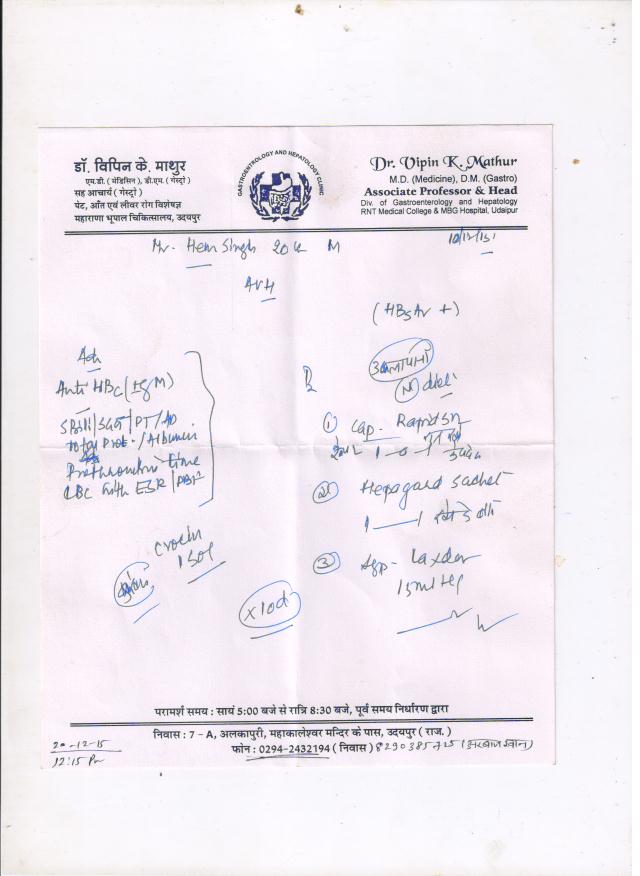 डॉ. विपिन के. माथुर
एम.डी. ( मेडिसिन ), डी.एम. ( गेस्ट्रो )
सह आचार्य ( गेस्ट्रो )
पेट, आँत एवं लीवर रोग विशेषज्ञ
महाराणा भूपाल चिकित्सालय, उदयपुर
GASTROENTROLOGY AND HEPATOLOGY CLINIC
Dr. Vipin K. Mathur
M.D. (Medicine), D.M. (Gastro)
Associate Professor & Head
Div. of Gastroenterology and Hepatology
RNT Medical College & MBG Hospital, Udaipur
Mr. Hem Singh 20 M
10/12/15
AVH
(HBsAg +)
Adv
Anti HBc (IgM)
SBill / SGOT / PT /
Total Prot. / Albumin
Prothrombin time
CBC with ESR /
N diet
① Cap.
1 - 0 - 1
② Hepagard sachet
1 — 1
③ Syp-
15ml HS
Crocin
1 SOS
x 10d
परामर्श समय : सायं 5:00 बजे से रात्रि 8:30 बजे, पूर्व समय निर्धारण द्वारा
निवास : 7 - A, अलकापुरी, महाकालेश्वर मन्दिर के पास, उदयपुर ( राज. )
फोन : 0294-2432194 ( निवास ) 8290385725
20-12-15
12:15 Pm